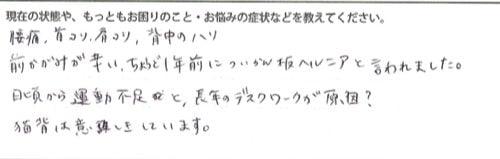 現在の状態や、もっともお困りのこと・お悩みの症状などを教えてください。
腰痛, 首コリ, 肩コリ, 背中のハリ
前かがみが辛い、ちょうど1年前についかん板ヘルニアと言われました。
日頃から運動不足だと、長年のデスクワークが原因?
猫背は意識しています。